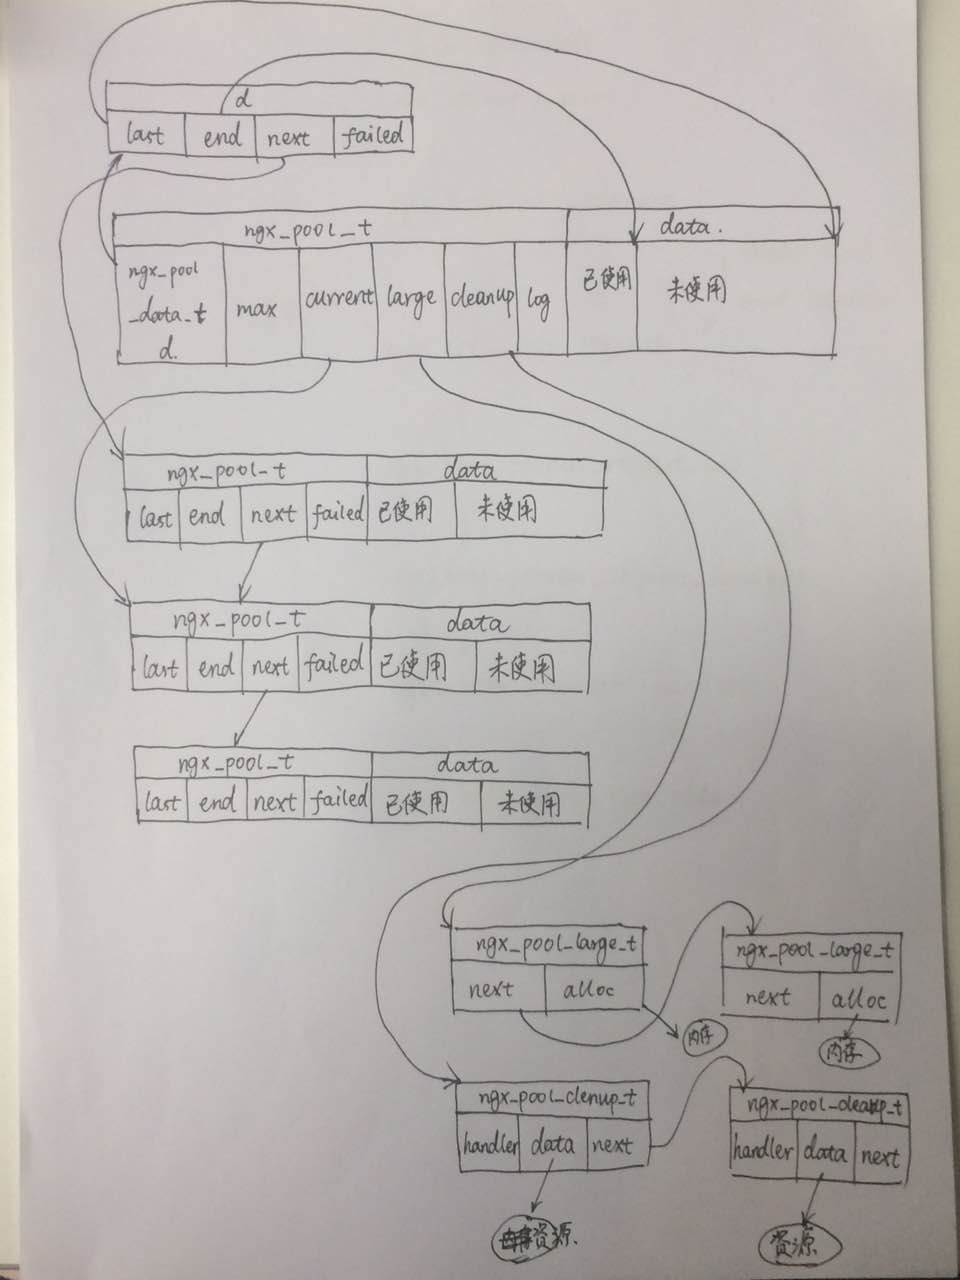 d
last end next failed
ngx_pool_t data.
ngx_pool
_data_t
d.
max current large cleanup log 已使用 未使用
ngx_pool_t data
last end next failed 已使用 未使用
ngx_pool_t data
last end next failed 已使用 未使用
ngx_pool_t data
last end next failed 已使用 未使用
ngx_pool_large_t
next alloc
内存
ngx_pool_large_t
next alloc
内存
ngx_pool_clenup_t
handler data next
资源
ngx_pool_cleanup_t
handler data next
资源